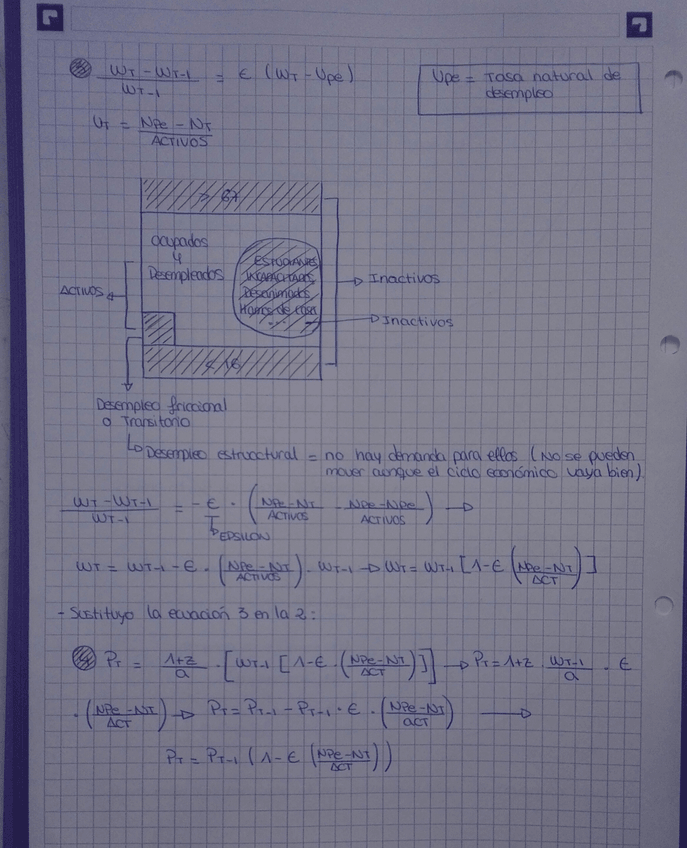 (WT - WT-1) / WT-1 = ε (WT - Upe)
Upe = Tasa natural de
desempleo
UT = (NPe - NT) / ACTIVOS
> 67
Ocupados
y
Desempleados
ESTUDIANTES
INCAPACITADOS
Desanimados
Hamos de casa
ACTIVOS
Inactivos
Inactivos
< 16
Desempleo friccional
o Transitorio
↳ Desempleo estructural = no hay demanda para ellos (No se pueden
mover aunque el ciclo económico vaya bien).
(WT - WT-1) / WT-1 = -ε · ((NPe - NT) / ACTIVOS - (NPe - NPe) / ACTIVOS) →
EPSILON
WT = WT-1 - ε · ((NPe - NT) / ACTIVOS) · WT-1 → WT = WT-1 [1 - ε ((NPe - NT) / ACT)]
- Sustituyo la ecuación 3 en la 2:
④ PT = (1+z) / a · [WT-1 [1 - ε · ((NPe - NT) / ACT)]] → PT = 1+z · WT-1 / a · ε
· ((NPe - NT) / ACT) → PT = PT-1 - PT-1 · ε · ((NPe - NT) / ACT) →
PT = PT-1 (1 - ε ((NPe - NT) / ACT))